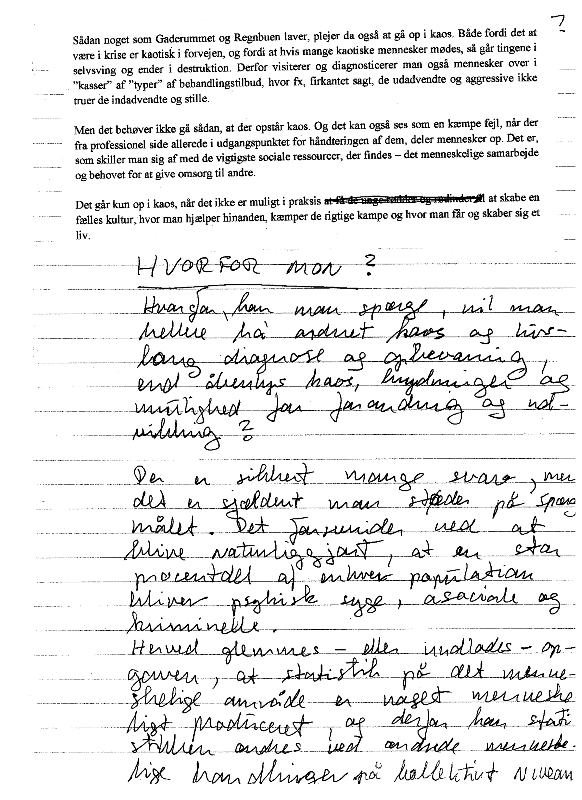 ?
Sådan noget som Gaderummet og Regnbuen laver, plejer da også at gå op i kaos. Både fordi det at
være i krise er kaotisk i forvejen, og fordi at hvis mange kaotiske mennesker mødes, så går tingene i
selvsving og ender i destruktion. Derfor visiterer og diagnosticerer man også mennesker over i
"kasser" af "typer" af behandlingstilbud, hvor fx, firkantet sagt, de udadvendte og aggressive ikke
truer de indadvendte og stille.
Men det behøver ikke gå sådan, at der opstår kaos. Og det kan også ses som en kæmpe fejl, når der
fra professionel side allerede i udgangspunktet for håndteringen af dem, deler mennesker op. Det er,
som skiller man sig af med de vigtigste sociale ressourcer, der findes – det menneskelige samarbejde
og behovet for at give omsorg til andre.
Det går kun op i kaos, når det ikke er muligt i praksis at skabe en
fælles kultur, hvor man hjælper hinanden, kæmper de rigtige kampe og hvor man får og skaber sig et
liv.
HVORFOR MON ?
Hvorfor, kan man spørge, vil man
hellere ha ordnet kaos og livs-
lang diagnose og opbevaring,
end åbenlys kaos, brydninger og
mulighed for forandring og ud-
vikling ?
Der er sikkert mange svar, men
det er sjældent man støder på spørgs
målet. Det forsvinder ved at
blive naturliggjort, at en stor
procentdel af enhver population
bliver psykisk syge, asociale og
kriminelle.
Herved glemmes – eller undlades – op-
gaven, at statistik på det menne-
skelige område er noget menneske
ligt produceret, og derfor kan stati
stikken ændres ved ændrede menneske-
lige handlinger på kollektivt niveau